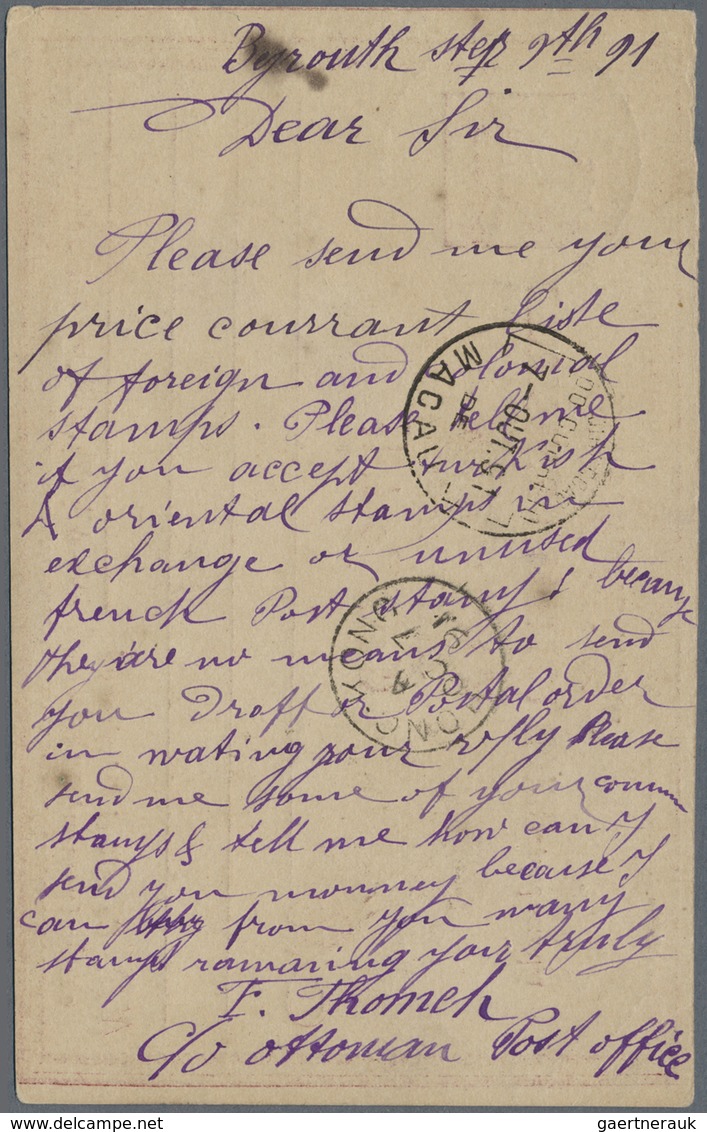 Byrouth step 9th 91
Dear Sir
Please send me your
price courrant liste
of foreign and colonial
stamps. Please tel me
if you accept turkish
& oriental stamps in
exchange or unused
french Post stamps because
they are no means to send
you draft or Postal order
in wating your reply Please
send me some of your comm
stamps & tell me how can I
send you monney because I
can from you many
stamps ramaning your truly
F. Thomeh
C/o ottoman Post office
MACAU
DE
7-OUT.91
HONG KONG
OC 7
91
gaertnerauk